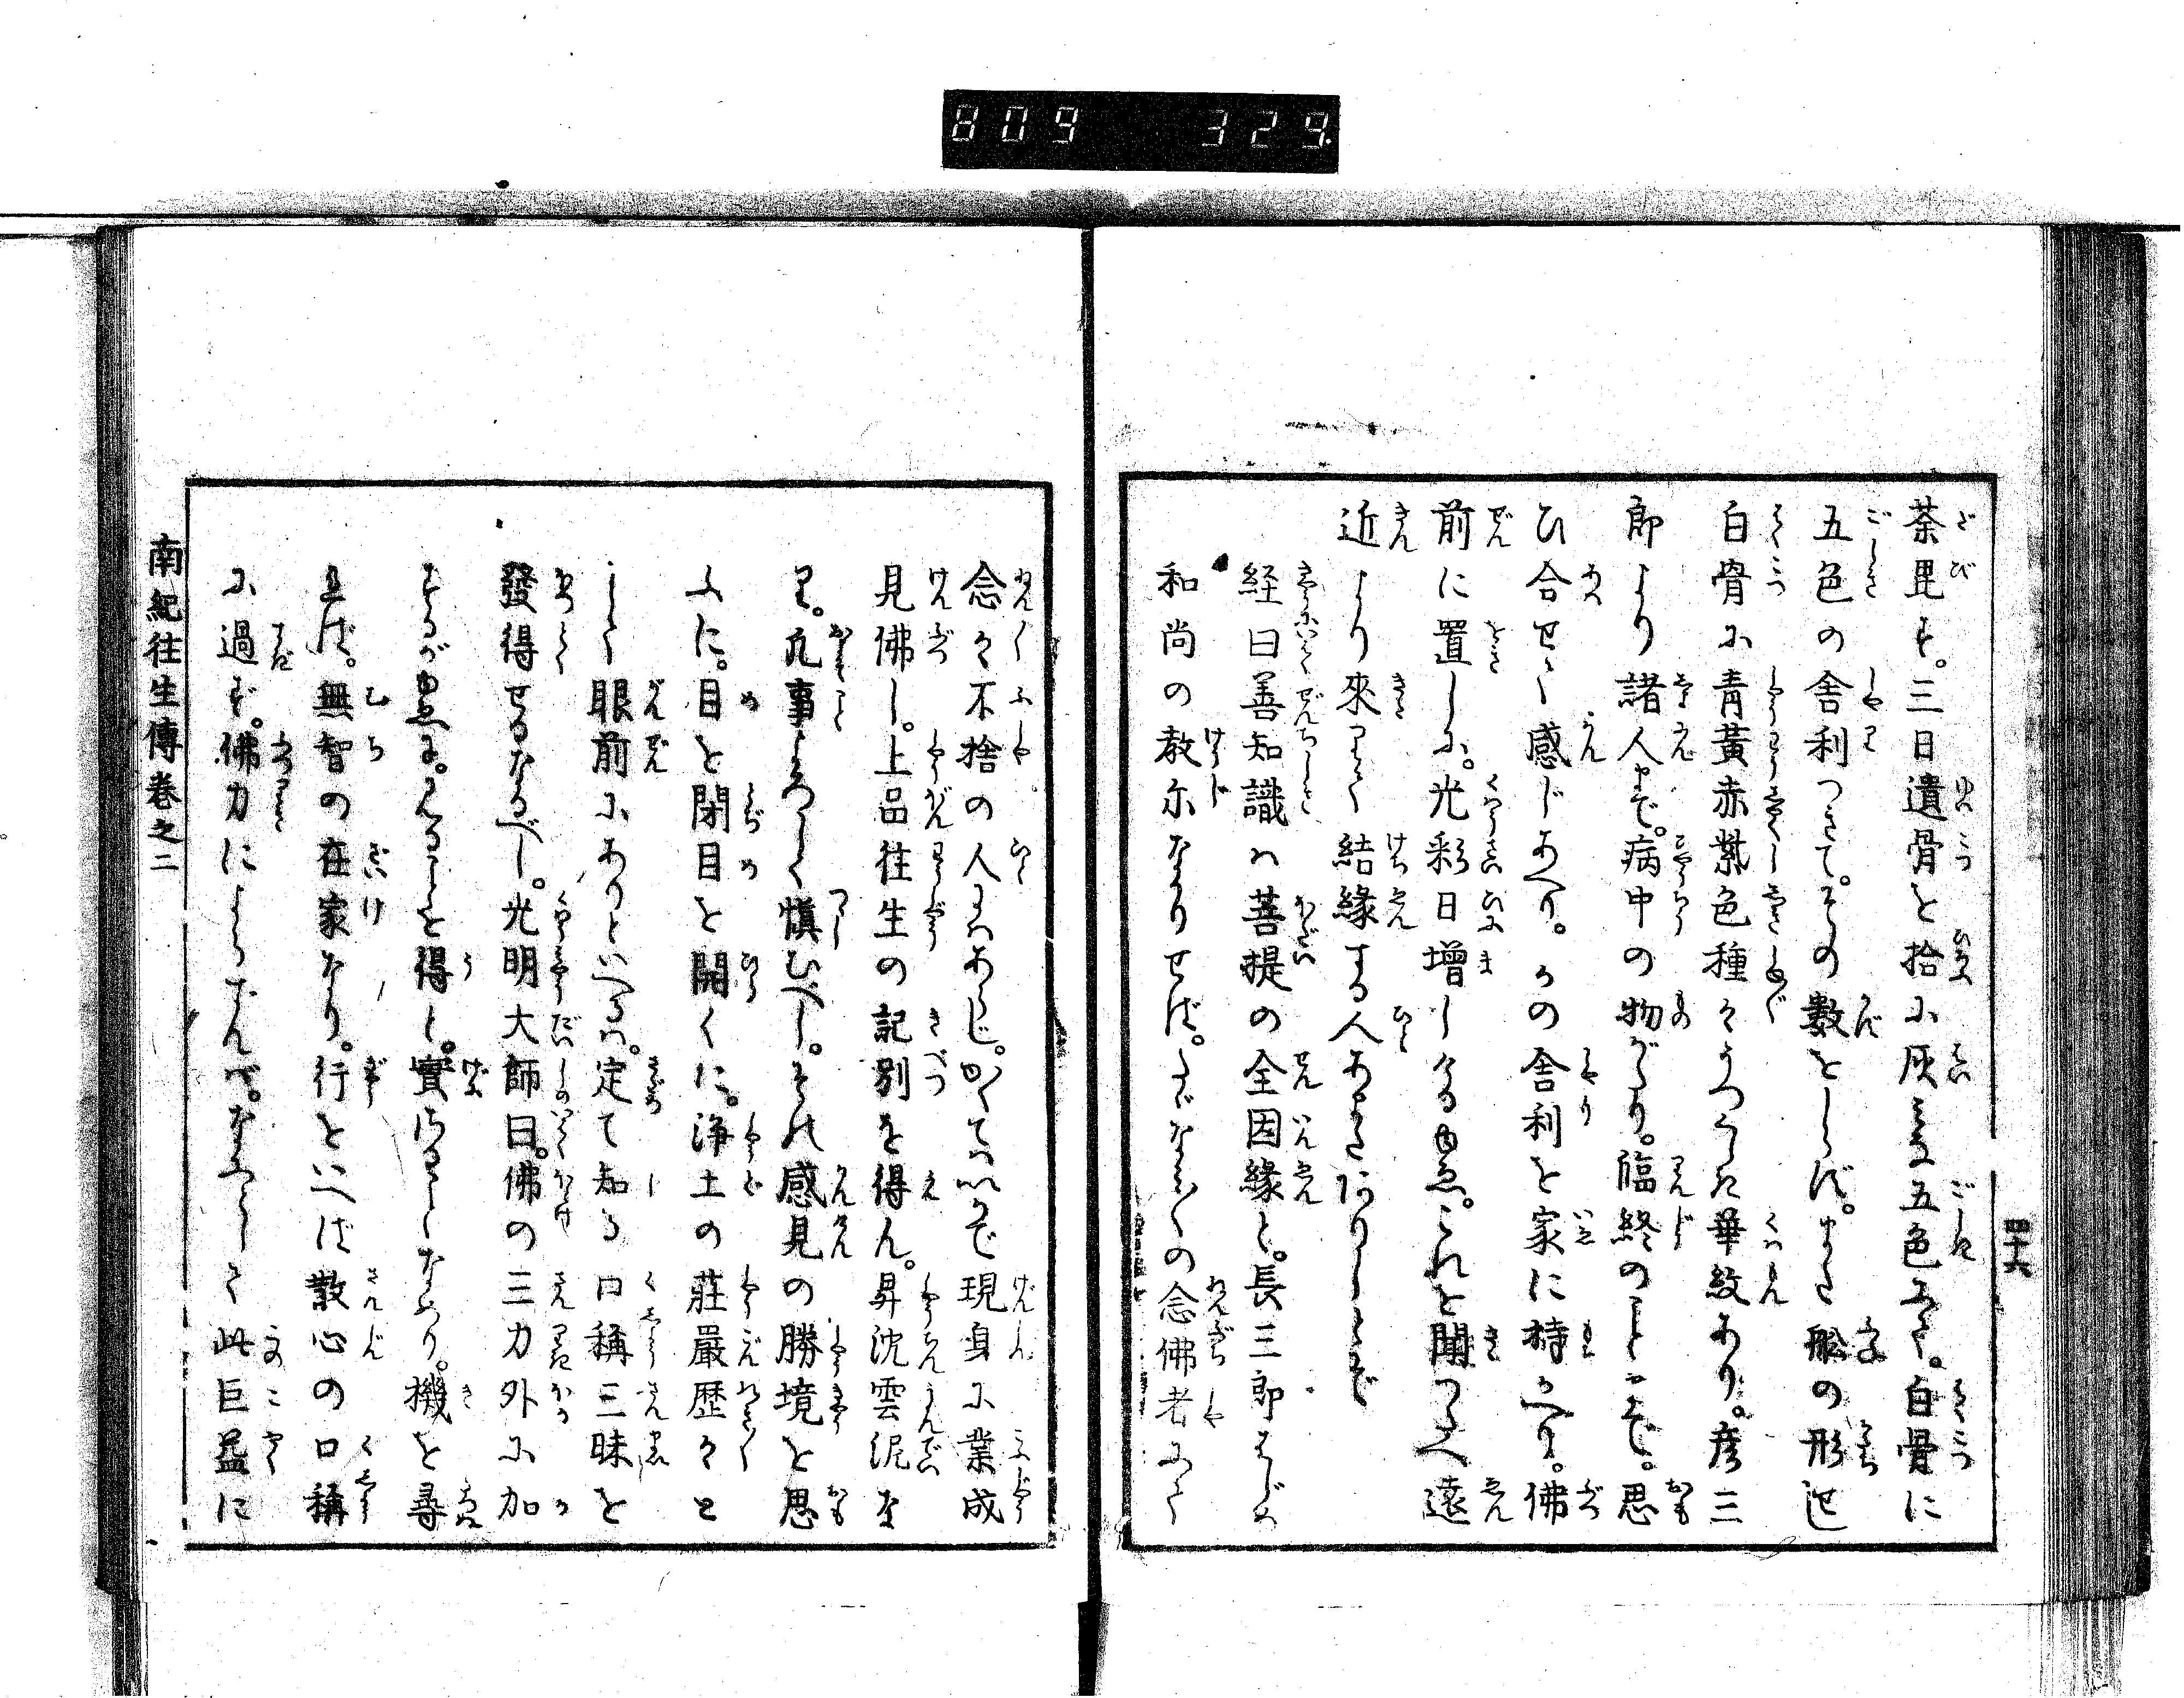 809 329
四十六
荼毘す。三日遺骨を拾に灰みな五色にて。白骨に
五色の舎利つきて。その数をしらず。また舩の形せし
白骨に青黄赤紫色種々うつくしき華紋あり。彦三
郎より諸人まで。病中の物がたり。臨終のことまで。思
ひ合せて感じあへり。かの舎利を家に持かへり。佛
前に置しに。光彩日増しけるゆゑ。これを聞つたへ遠
近より來りて結縁する人あまたありしとぞ
経曰善知識ハ菩提の全因縁と。長三郎はじめ
和尚の教示なかりせば。たゞなみ〳〵の念佛者にて
念々不捨の人にハあらじ。かくてハいかで現身に業成
見佛し。上品往生の記別を得ん。昇沈雲泥な
り。凢事よろしく慎むべし。それ感見の勝境を思
ふに。目を閉目を開くに。浄土の莊嚴歴々と
して眼前にありといへるハ。定て知る口稱三昧を
發得せるなるべし。光明大師曰。佛の三力外に加
するがゆゑに。みることを得と。實にまさしくなめり。機を尋
れば。無智の在家なり。行をいへば散心の口稱
に過ず。佛力によらずんバ。なんぞして此巨益に
南紀往生傳巻之二